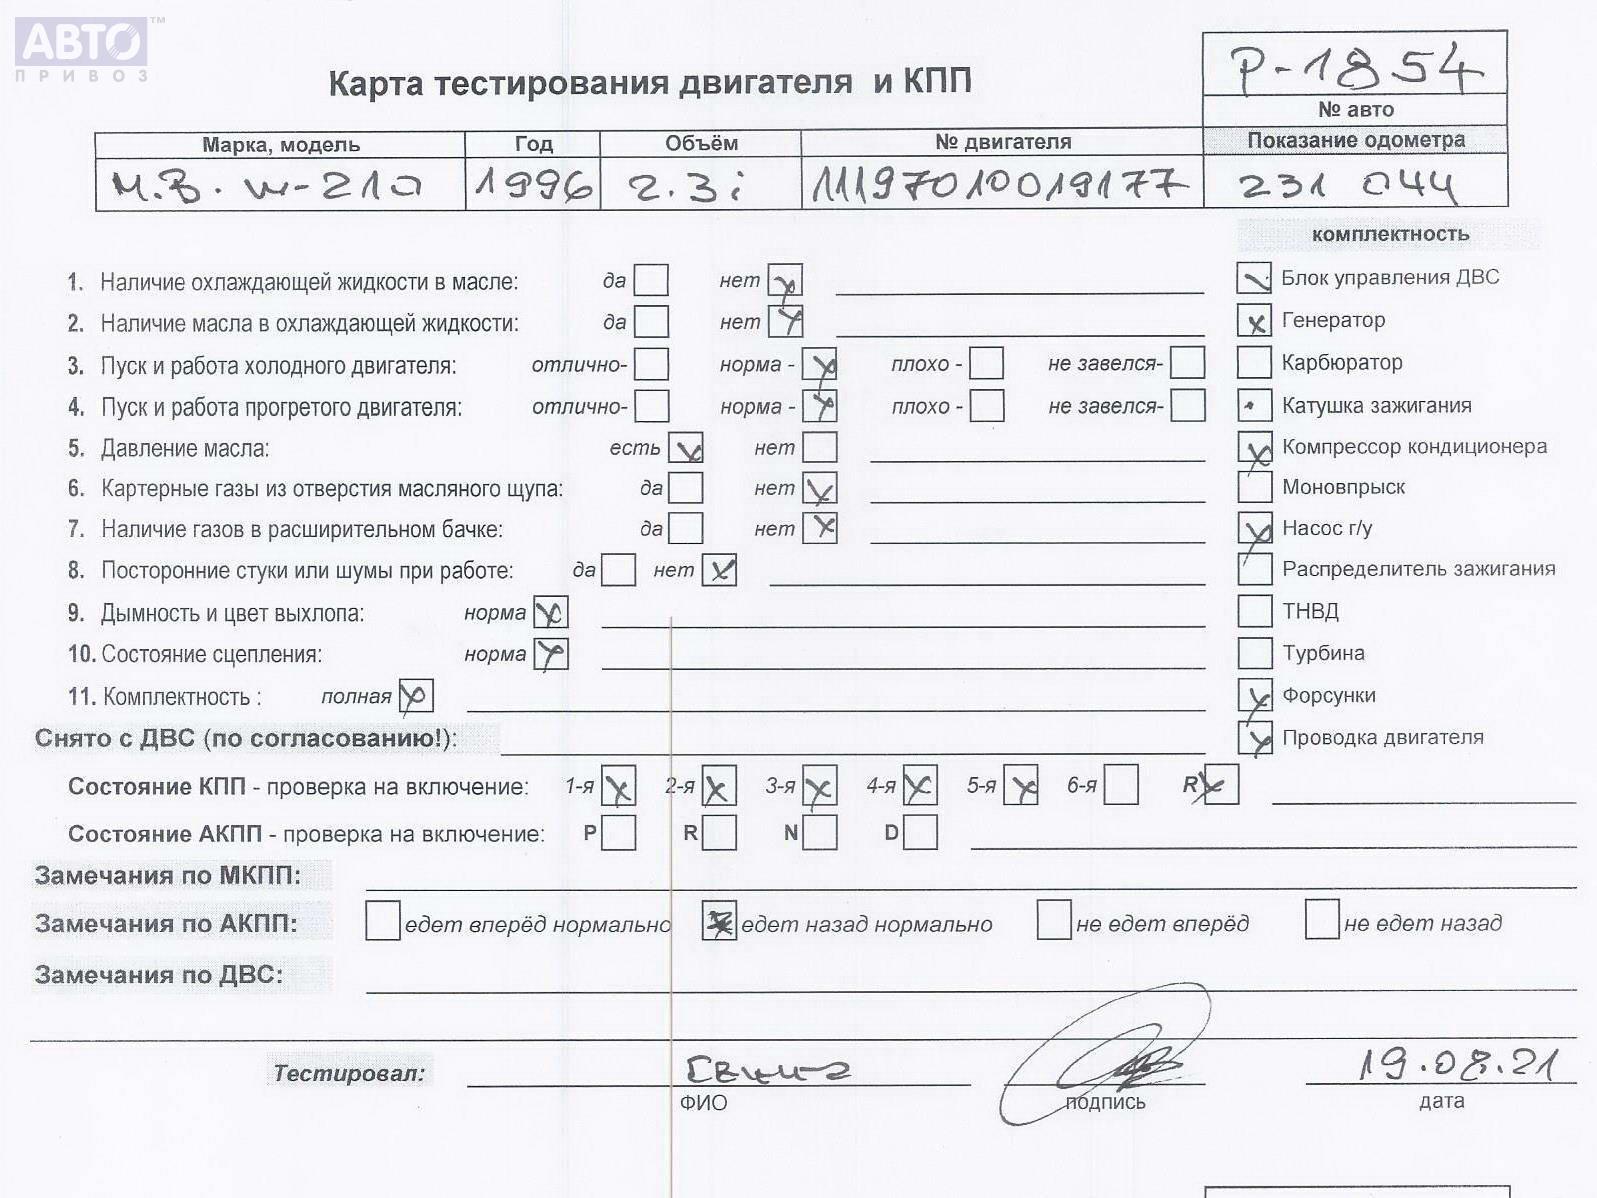 АВТО ™
ПРИВОЗ
Карта тестирования двигателя и КПП
P-1854
№ авто
Марка, модель Год Объём № двигателя Показание одометра
М.В. w-210 1996 2.3i 11197010019177 231 044
комплектность
1. Наличие охлаждающей жидкости в масле: да нет
Блок управления ДВС
2. Наличие масла в охлаждающей жидкости: да нет
Генератор
3. Пуск и работа холодного двигателя: отлично- норма - плохо - не завелся-
Карбюратор
4. Пуск и работа прогретого двигателя: отлично- норма - плохо - не завелся-
Катушка зажигания
5. Давление масла: есть нет
Компрессор кондиционера
6. Картерные газы из отверстия масляного щупа: да нет
Моновпрыск
7. Наличие газов в расширительном бачке: да нет
Насос г/у
8. Посторонние стуки или шумы при работе: да нет
Распределитель зажигания
9. Дымность и цвет выхлопа: норма
ТНВД
10. Состояние сцепления: норма
Турбина
11. Комплектность : полная
Форсунки
Снято с ДВС (по согласованию!):
Проводка двигателя
Состояние КПП - проверка на включение: 1-я 2-я 3-я 4-я 5-я 6-я R
Состояние АКПП - проверка на включение: P R N D
Замечания по МКПП:
Замечания по АКПП: едет вперёд нормально едет назад нормально не едет вперёд не едет назад
Замечания по ДВС:
Тестировал: 19.08.21
ФИО подпись дата